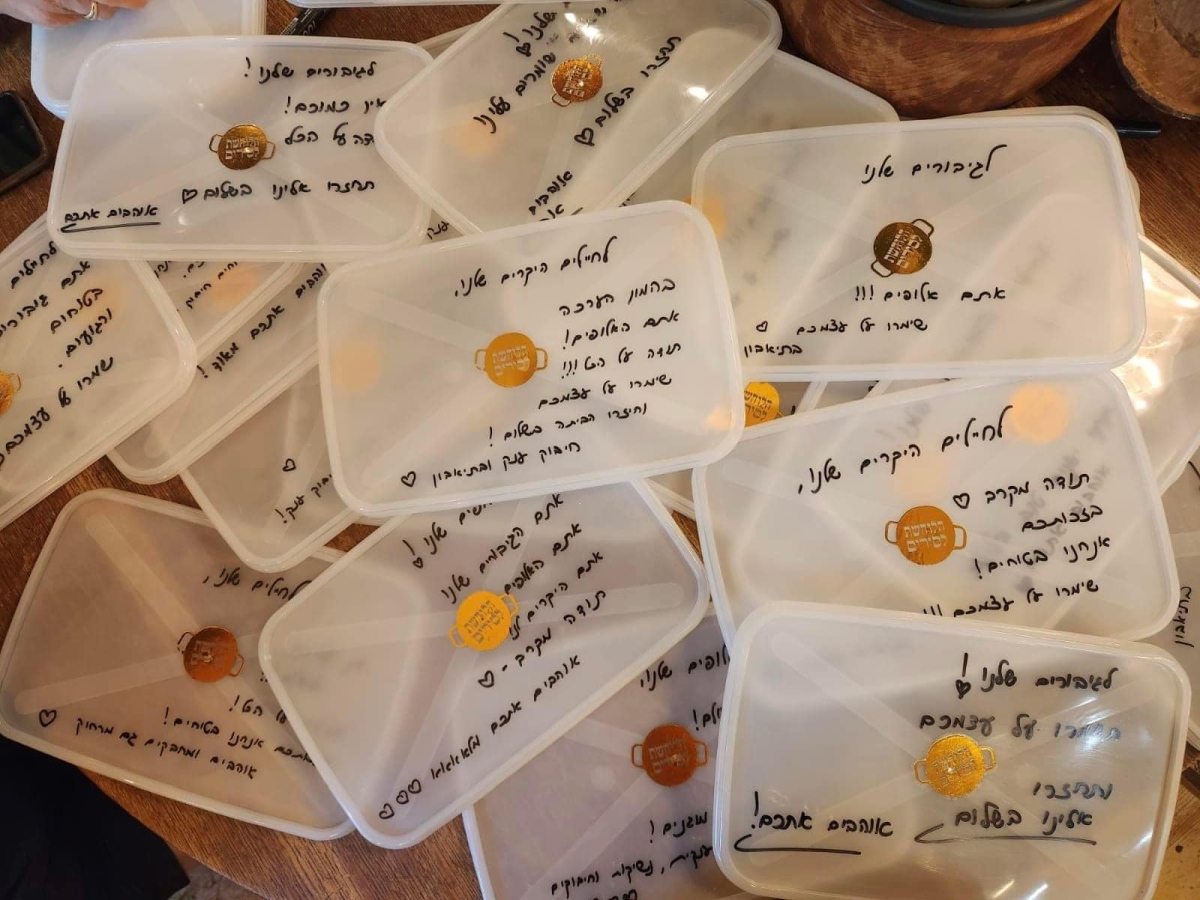 לגיבורים שלנו!
אין כמוכם!
תודה על הכל
תחזרו אלינו בשלום♡
אוהבים אתכם
שומרים עלינו
תחזרו
בשלום♡
אוהבים
לגיבורים שלנו
הלוחשת
לסירים
אתם אלופים!!!
שימרו על עצמכם ♡
בתיאבון
לחיילים
אתם גיבורים
בטוחים
ורגועים.
שמרו על עצמכם
אוהבים אתכם מאוד!
♡
חיבוק ענק!
לחיילים היקרים שלנו,
בהמון הערכה
אתם האלופים!
תודה על הכל!!!
שימרו על עצמכם
וחיזרו הביתה בשלום!
חיבוק ענק ובתיאבון ♡
הלוחשת
לסירים
לחיילים היקרים שלנו,
תודה מקרב ♡
בזכותכם
אנחנו בטוחים!
שימרו על עצמכם!!!
הלוחשת
לסירים
בתיאבון
לחיילים שלנו,
על הכל!
אנחנו בטוחים!
אוהבים ומחבקים גם מרחוק ♡
שלנו!
♡
אתם הגיבורים שלנו
אתם האלופים
אתם היקרים לנו
תודה מקרב - ♡
אוהבים אתכם מלאאאאא ♡♡♡
הלוחשת
לסירים
שלנו,
מוגנים!
נשיקות וחיבוקים
לגיבורים שלנו!
♡
תשמרו על עצמכם
ותחזרו
אלינו בשלום
אוהבים אתכם!